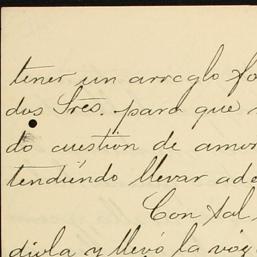 tener un arreglo
dos Sres. para que
do cuestión de amor
tendiendo llevar ade
Con tal
y llevó la voz